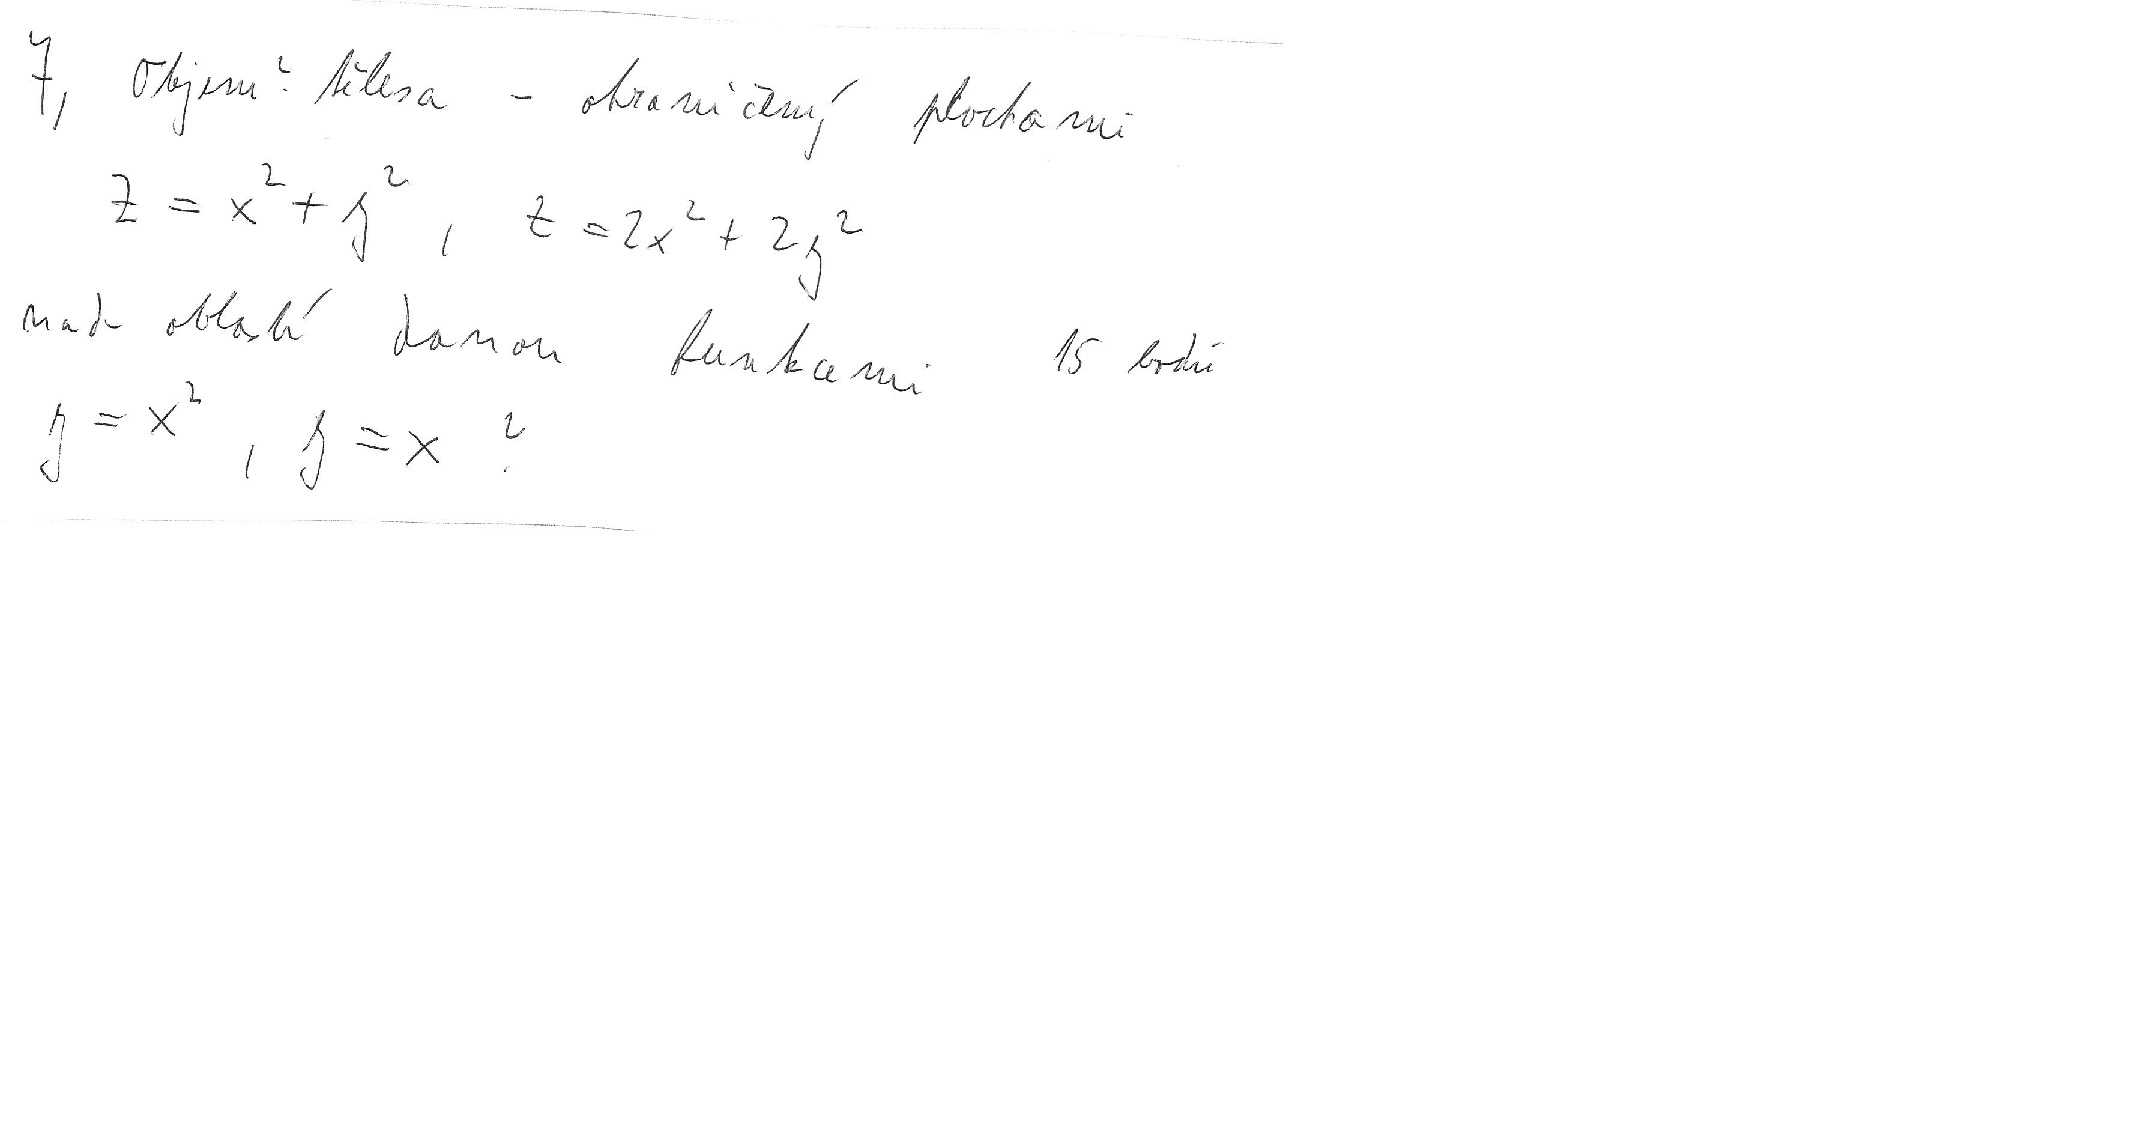 7, Objem? tělesa - ohraničený plochami
z = x² + y², z = 2x² + 2y²
nad oblastí danou funkcemi 15 bodů
y = x², y = x ?